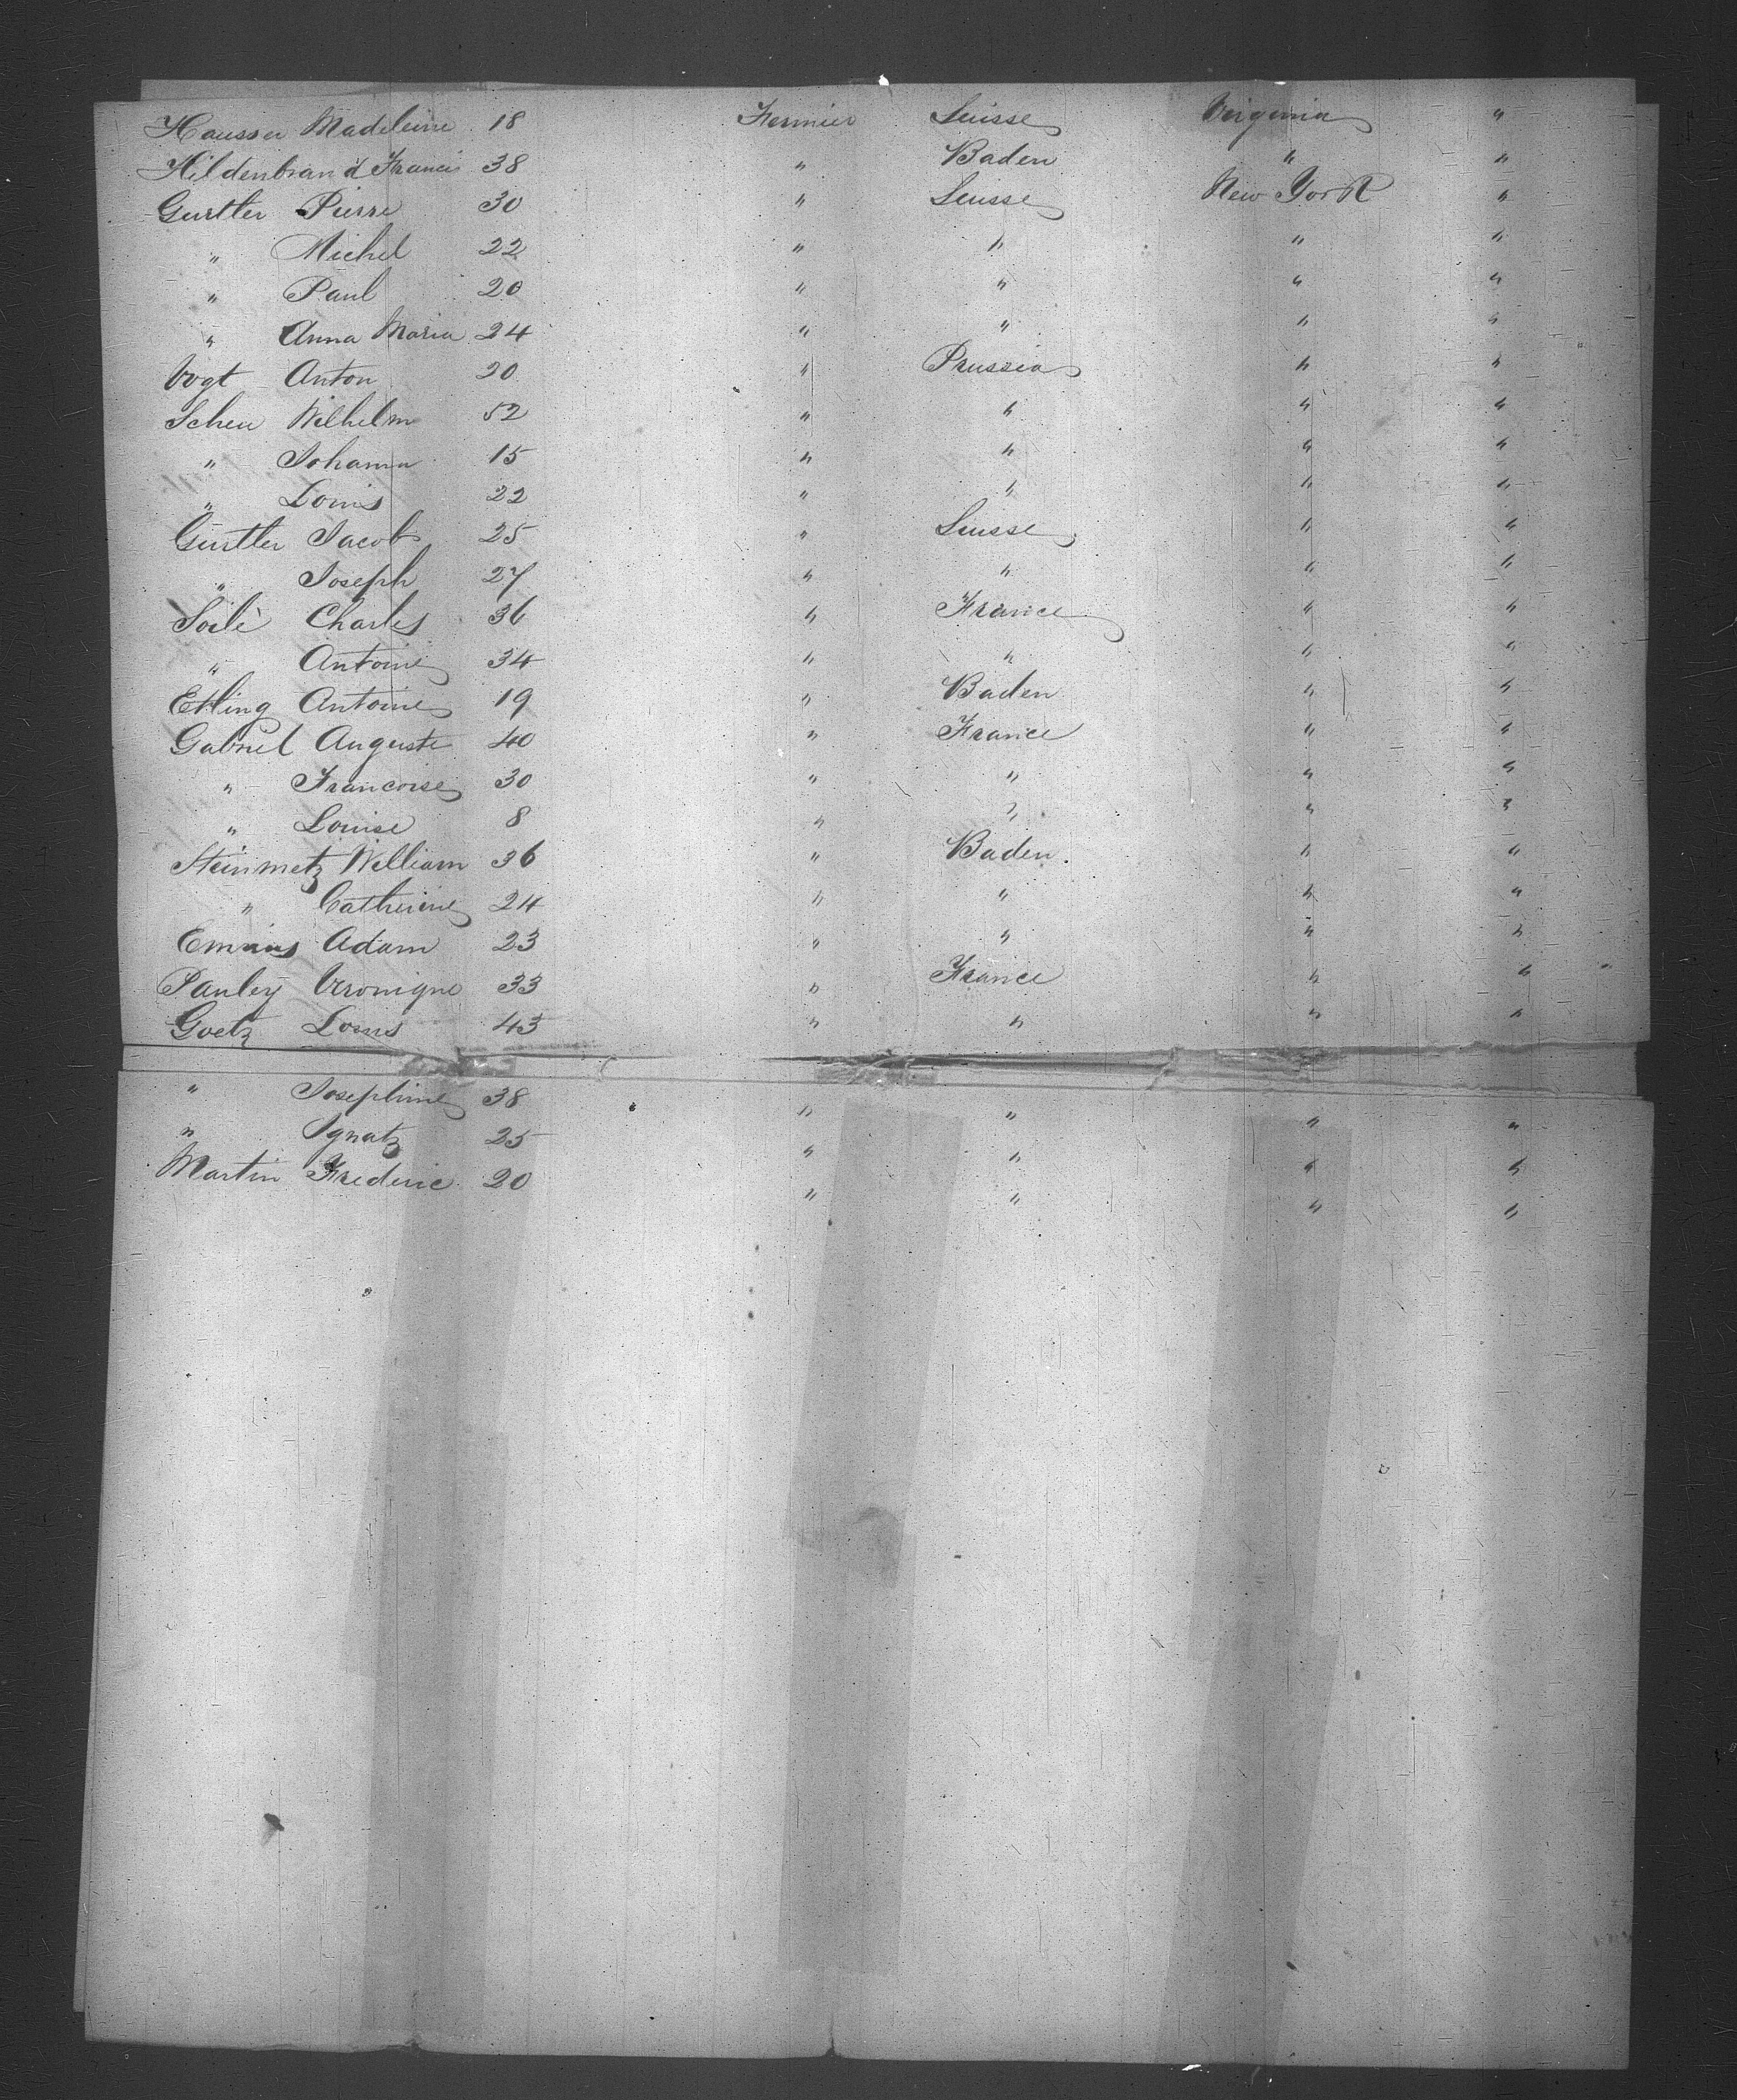 Hausser Madeleine 18 Fermier Suisse Virginia "
Hildenbrand Francis 38 " Baden " "
Gurtler Pierre 30 " Suisse New York "
" Michel 22 " " " "
" Paul 20 " " " "
" Anna Maria 24 " " " "
Vogt Anton 20 " Prussia " "
Scheu Wilhelm 52 " " " "
" Johann 15 " " " "
" Louis 22 " " " "
Gürtler Jacob 25 " Suisse " "
" Joseph 27 " " " "
Soilè Charles 36 " France " "
" Antoine 34 " " " "
Etling Antoine 19 " Baden " "
Gabriel Auguste 40 " France " "
" Francoise 30 " " " "
" Louise 8 " " " "
Steinmetz William 36 " Baden. " "
" Catherine 24 " " " "
Adam 23 " " " "
Pauley Veronique 33 " France " "
Goetz Louis 43 " " " "
" Josephine 38 " " " "
" Ignatz 25 " " " "
Martin Frederic 20 " " " "